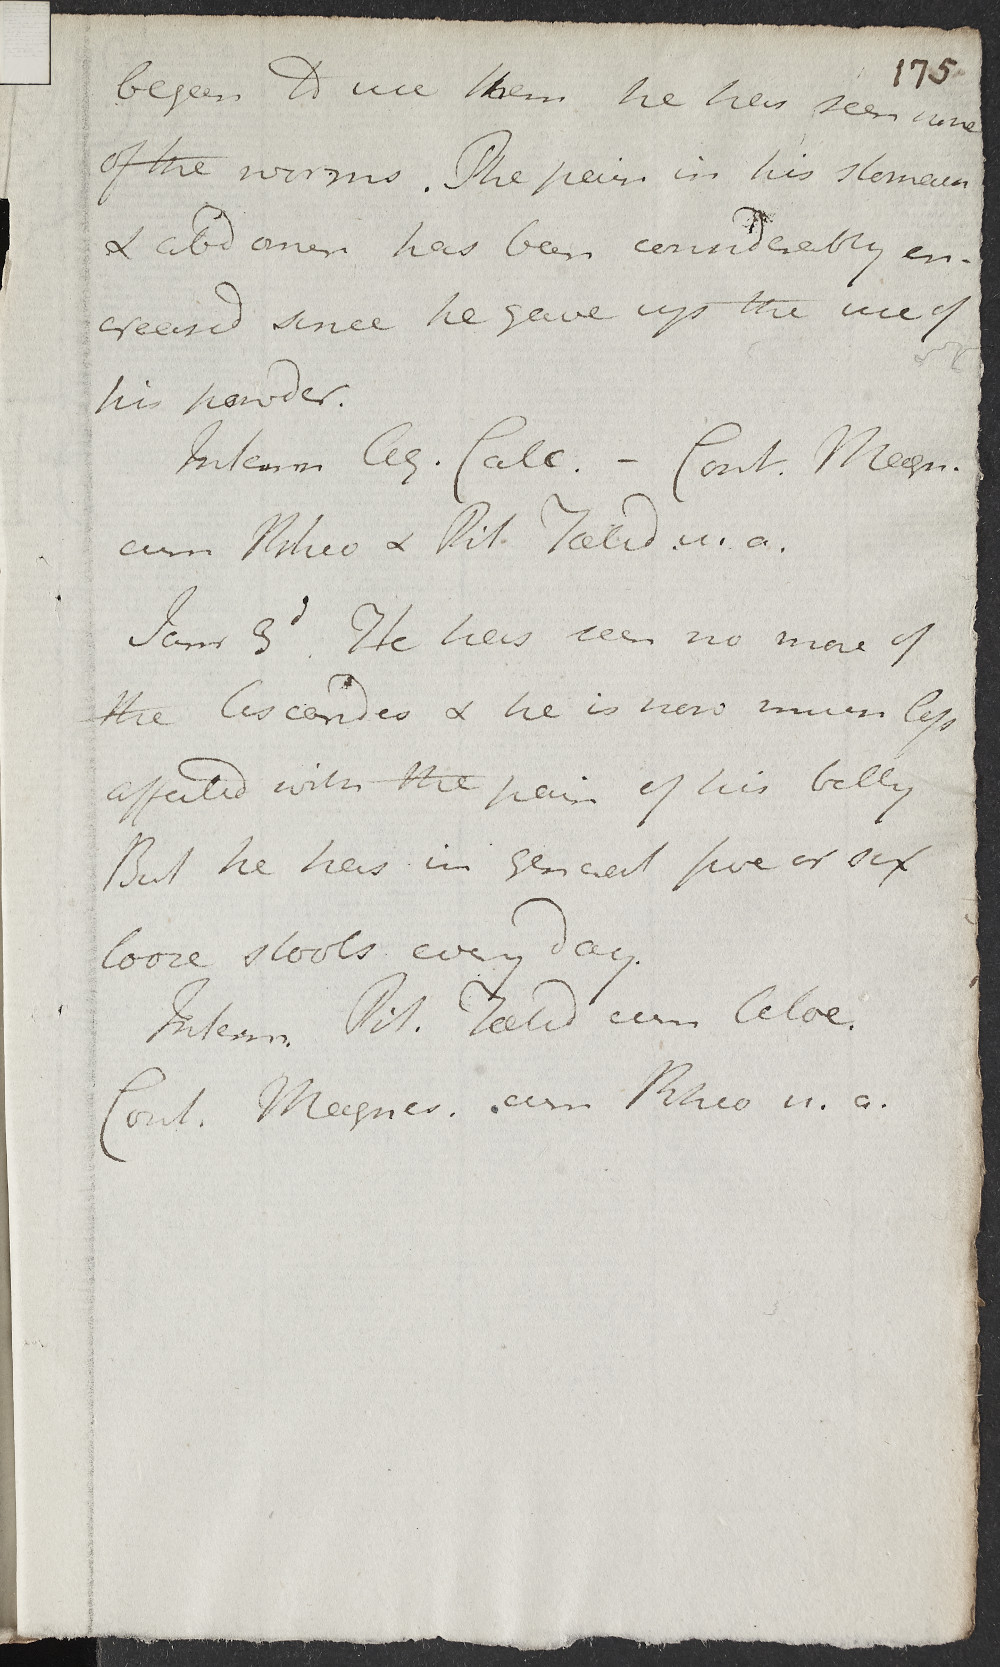 175
began to use them he has seen none
of the worms. The pain in his stomach
& abdomen has been considerably en-
creased since he gave up the use of
his powder.
Interm Aq. Calc. - Cont. Magn.
cum Rheo & Pil. Fœtid. u. a.
Janr 3d. He has seen no more of
the Ascarides & he is now much less
affected with the pain of his belly
But he has in general five or six
loose stools every day.
Interm. Pil. Fœtid cum Aloe.
Cont. Magnes. cum Rheo u. a.